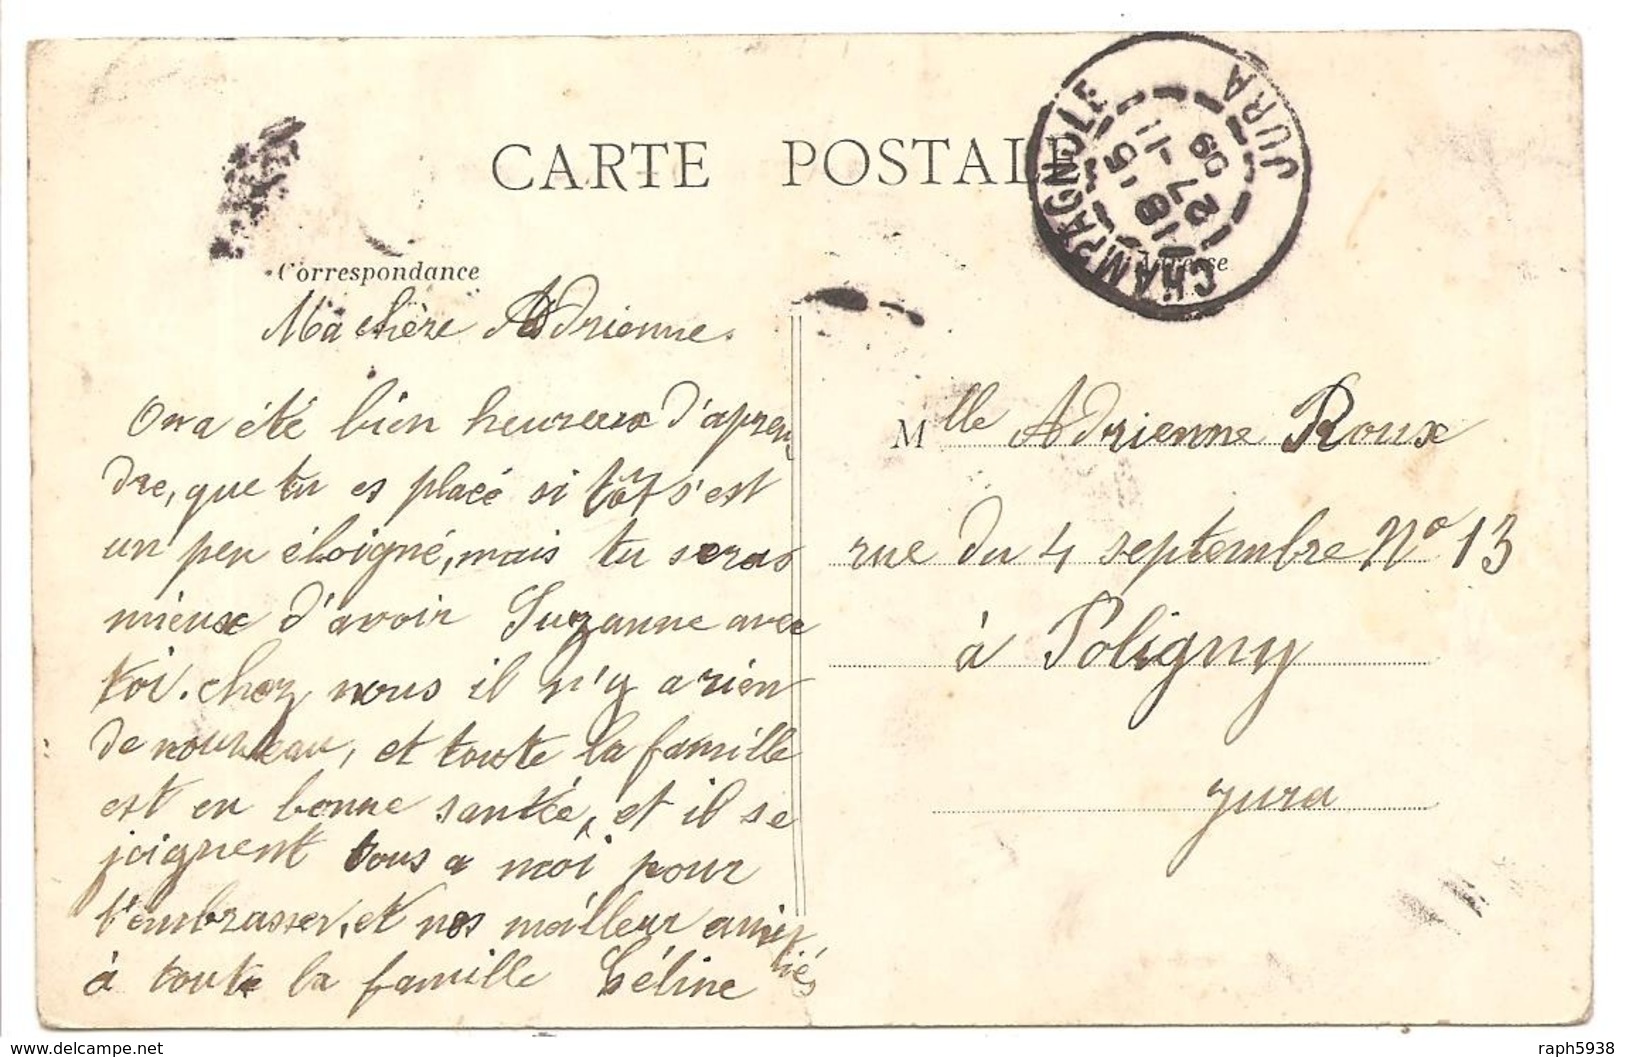 CARTE POSTALE
CHAMPAGNOLE
JURA
18 15
27 -11
09
Correspondance
Adresse
Ma chère Adrienne.
On a été bien heureux d'apren
dre, que tu es placé si tôt s'est
un peu éloigné, mais tu seras
mieux d'avoir Suzanne avec
toi. chez nous il n'y a rien
de nouveau, et toute la famille
est en bonne santée, et il se
joignent tous a moi pour
t'embrasser, et nos meilleur amit
tiés
à toute la famille Céline
Mlle Adrienne Roux
rue du 4 septembre No 13
à Poligny
Jura
www.delcampe.net
raph5938